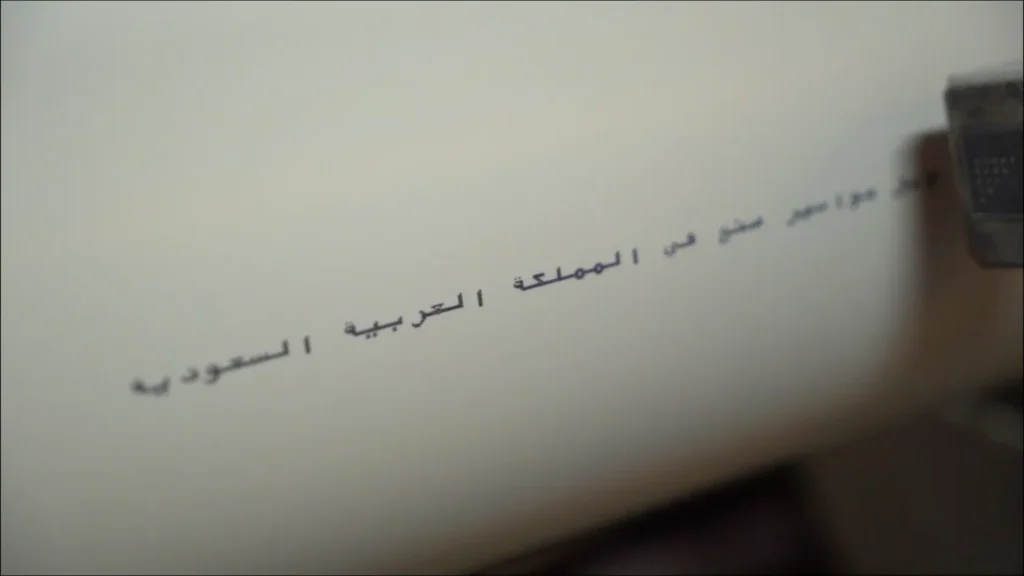 مواسير صنع في المملكة العربية السعودية